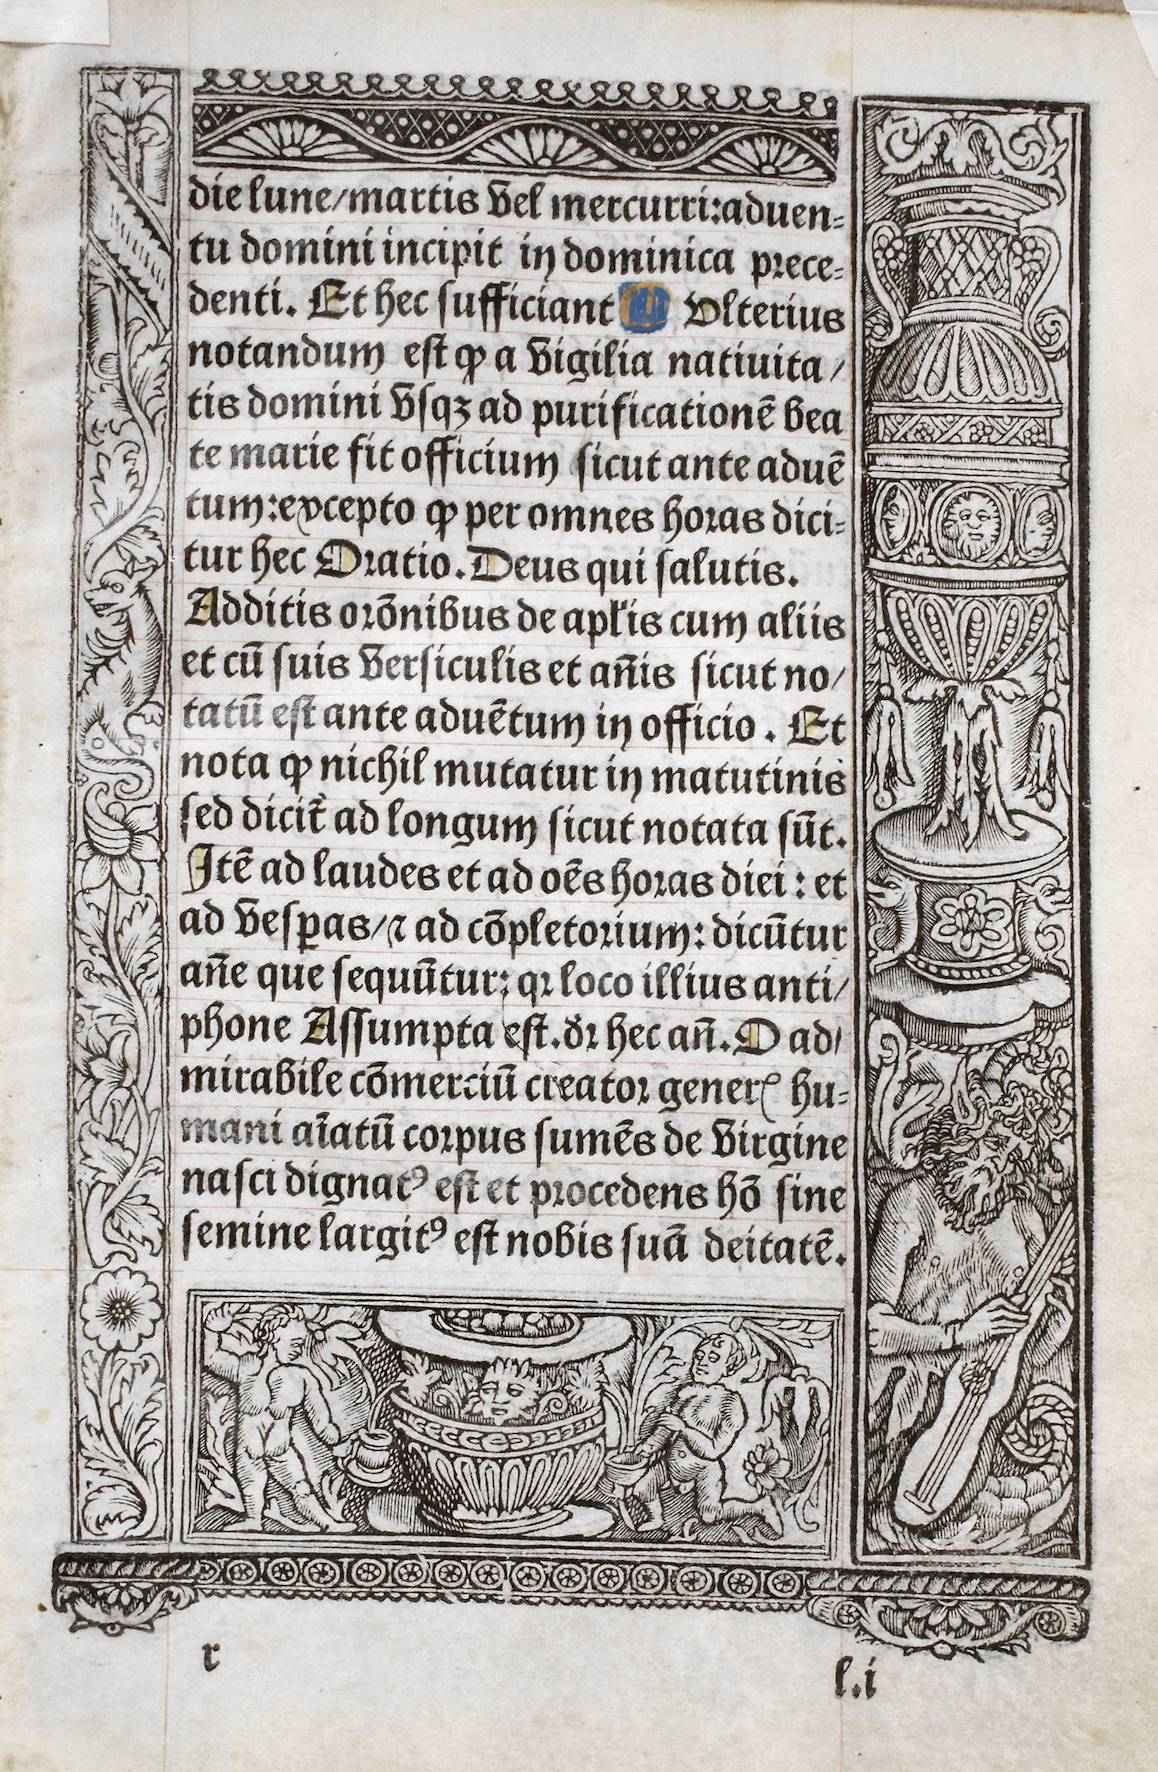 die lune/martis vel mercurri:aduen=
tu domini incipit in dominica prece=
denti. Et hec sufficiant Vlterius
notandum est ꝙ a vigilia natiuita/
tis domini vsqꝫ ad purificationē bea
te marie fit officium sicut ante aduē
tum:excepto ꝙ per omnes horas dici=
tur hec Oratio. Deus qui salutis.
Additis orōnibus de apłis cum aliis
et cū suis versiculis et añis sicut no/
tatū est ante aduētum in officio. Et
nota ꝙ nichil mutatur in matutinis
sed dicit̃ ad longum sicut notata sūt.
Itē ad laudes et ad oēs horas diei: et
ad vesꝑas/⁊ ad cōpletorium: dicūtur
añe que sequūtur: qꝛ loco illius anti/
phone Assumpta est. dꝛ hec añ. O ad/
mirabile cōmerciū creator generꝭ hu=
mani aīatū corpus sumēs de virgine
nasci dignatꝰ est et procedens hō sine
semine largitꝰ est nobis suā deitatē.
r
l.i